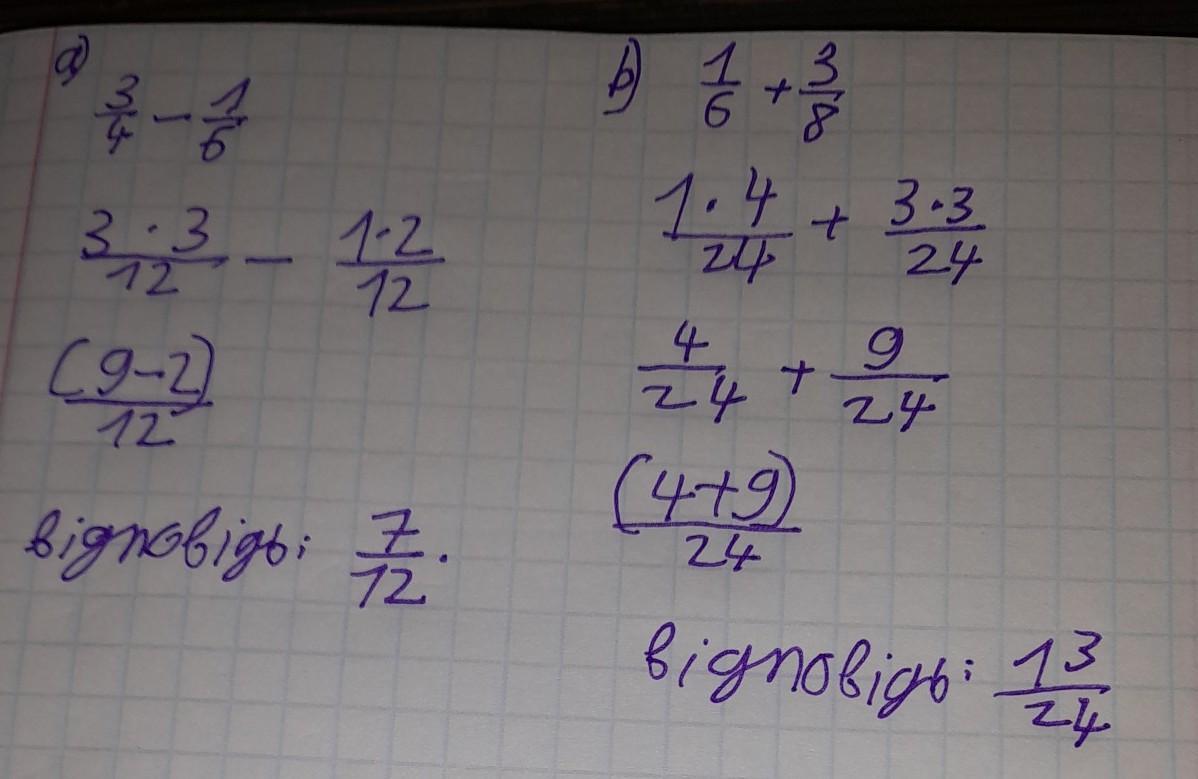 а)
3/4 - 1/6
3·3/12 - 1·2/12
(9-2)/12
відповідь: 7/12.
b)
1/6 + 3/8
1·4/24 + 3·3/24
4/24 + 9/24
(4+9)/24
відповідь: 13/24